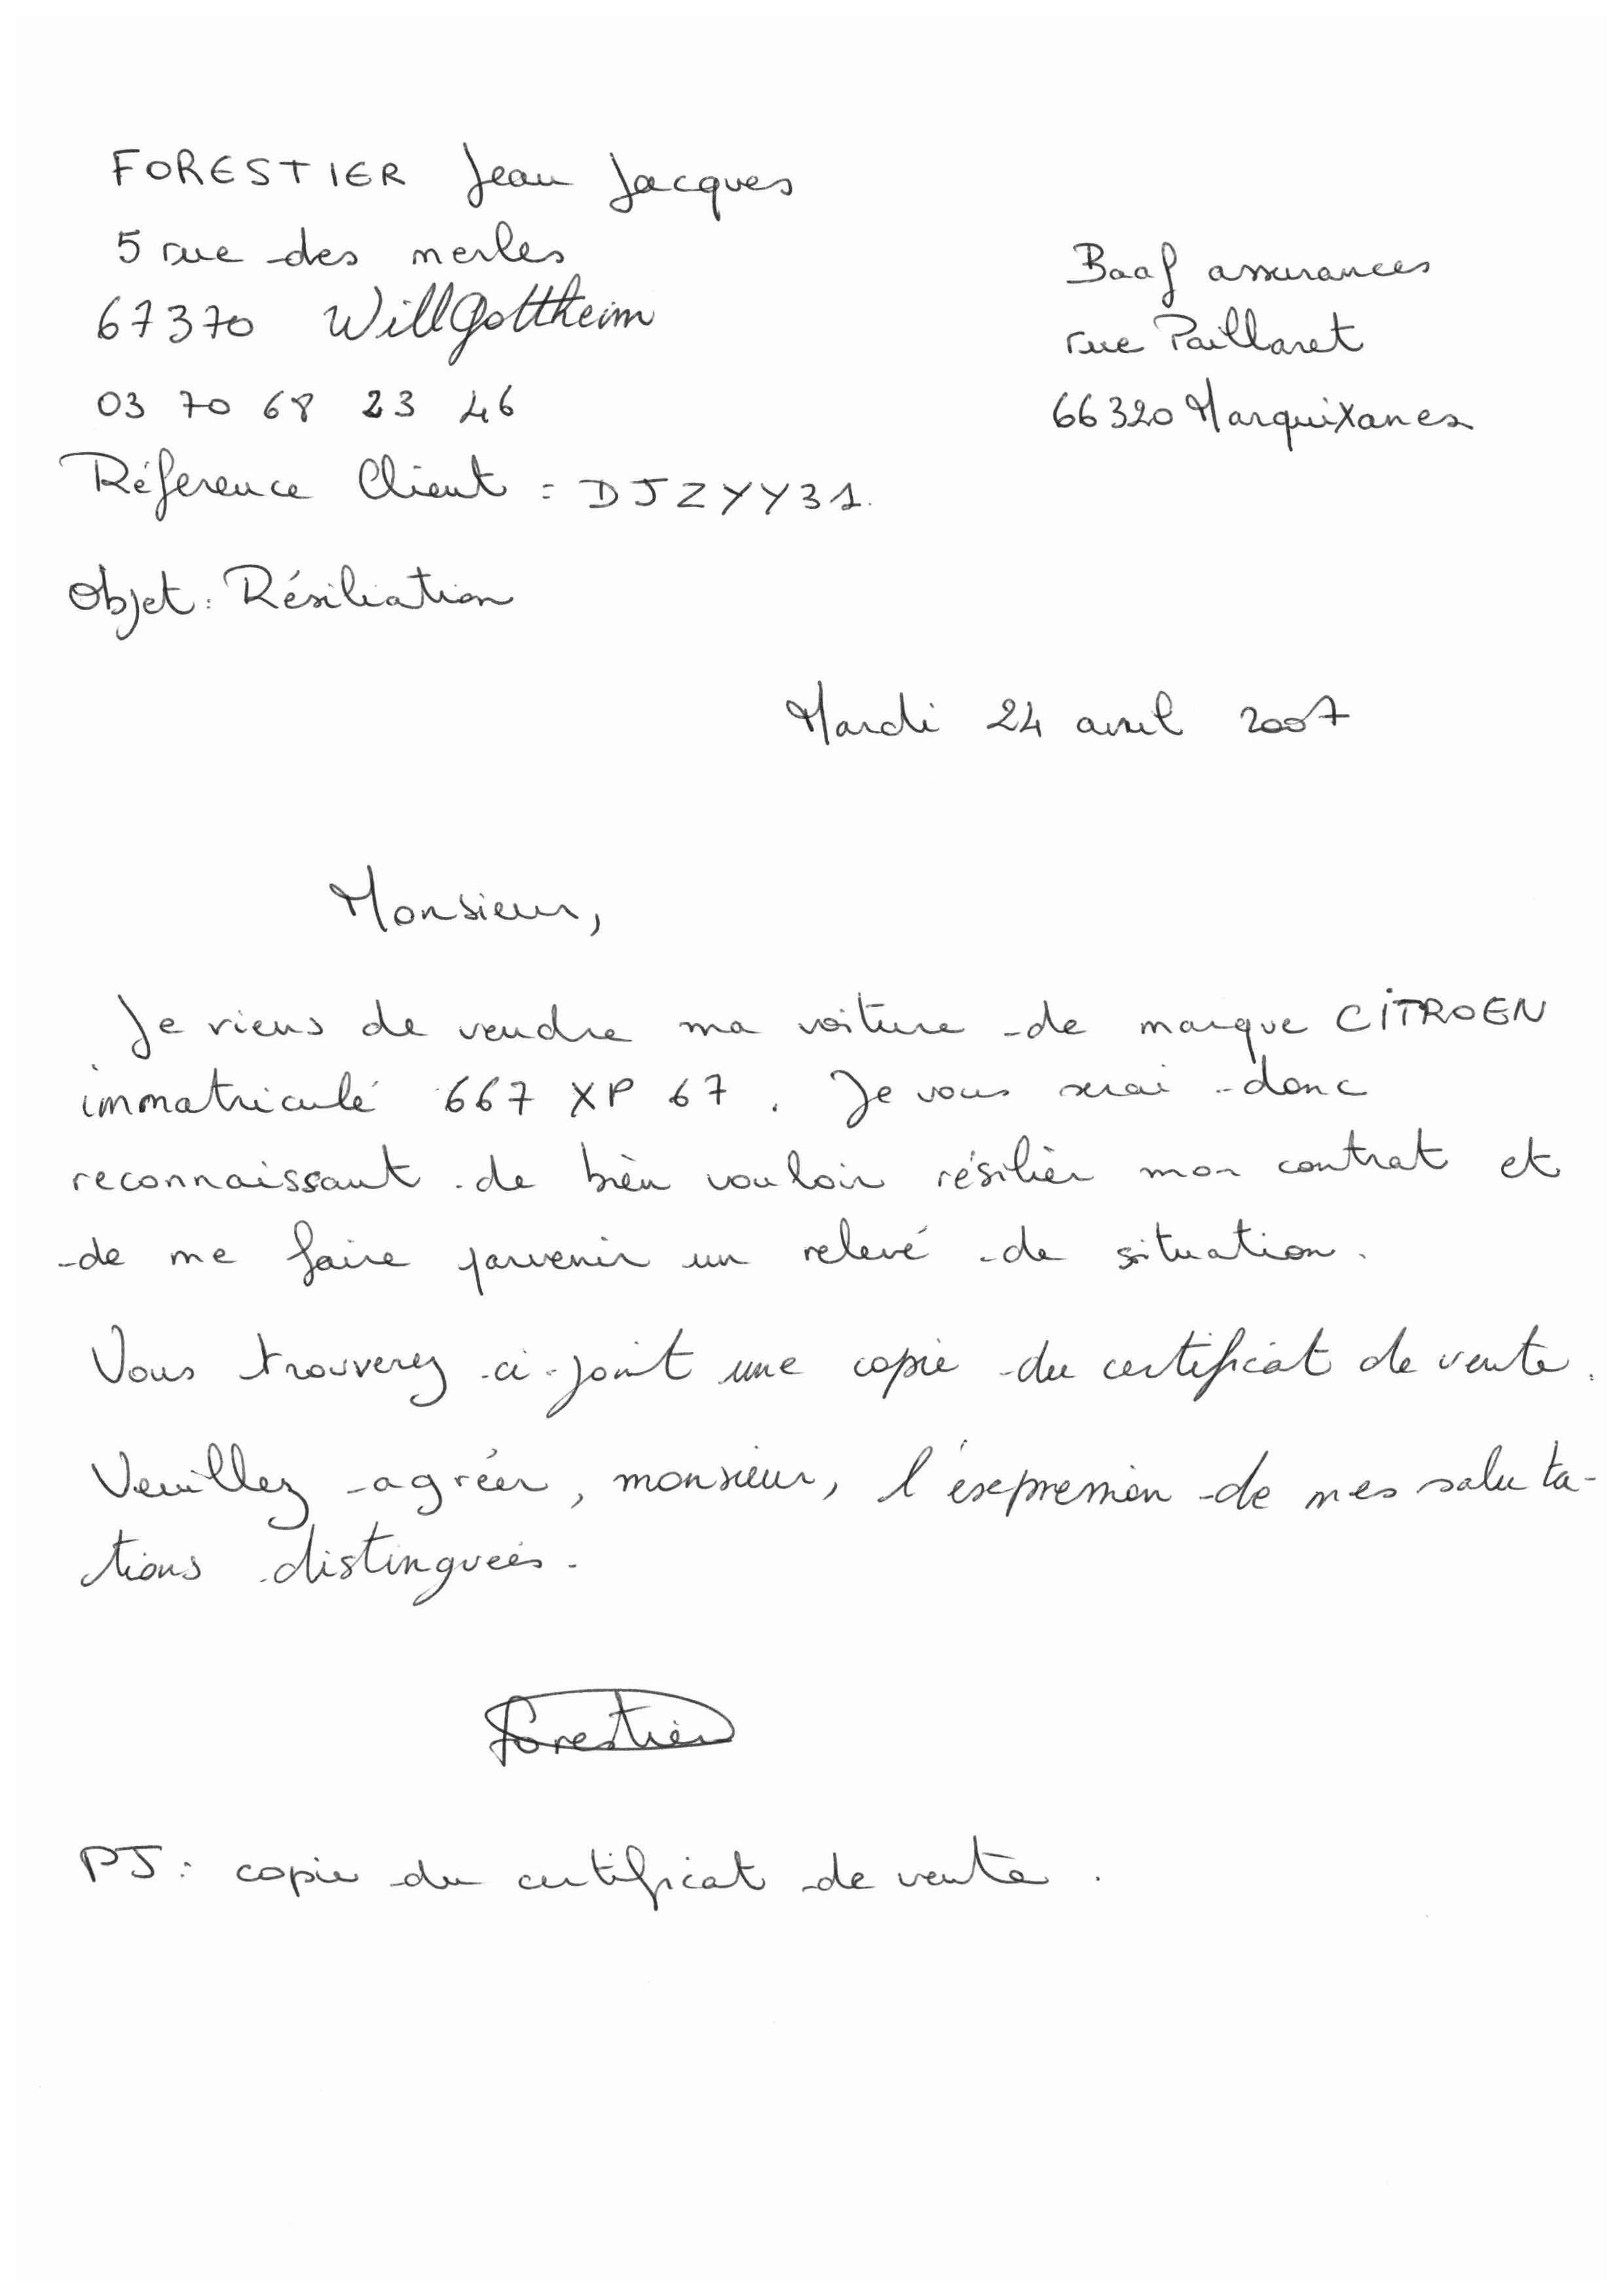 FORESTIER Jean Jacques
5 rue des merles
67370 Willgottheim
03 70 68 23 46
Réference Client : DJZYY31.
Baaf assurances
rue Paillaret
66320 Marquixanes
Objet : Résiliation
Mardi 24 avril 2007
Monsieur,
Je viens de vendre ma voiture de marque CITROEN
immatriculé 667 XP 67. Je vous serai donc
reconnaissant de bien vouloir résilier mon contrat et
de me faire parvenir un relevé de situation.
Vous trouverez ci-joint une copie du certificat de vente.
Veuillez agréer, monsieur, l'expression de mes saluta-
tions distinguées.
Forestier
PJ : copie du certificat de vente.